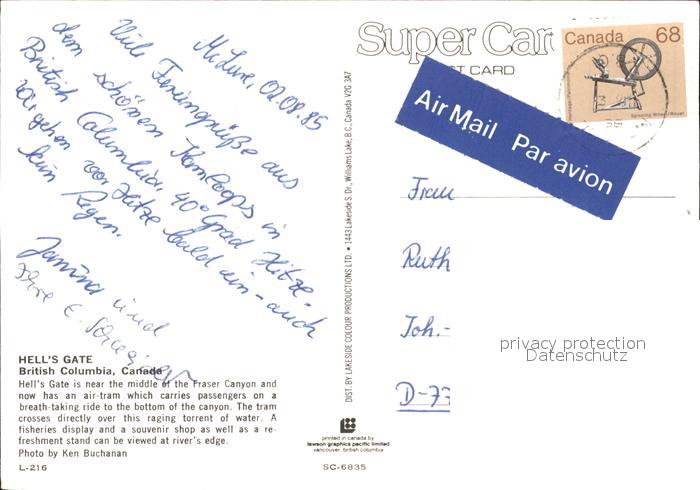 McLure, 02.08.85
Viele Feriengrüße aus
dem schönen Kamloops in
British Columbia, 40° Grad Hitze.
Wir gehen vor Hitze bald ein - auch
kein Regen.
Janina und
Ihre E.
HELL'S GATE
British Columbia, Canada
Hell's Gate is near the middle of the Fraser Canyon and
now has an air-tram which carries passengers on a
breath-taking ride to the bottom of the canyon. The tram
crosses directly over this raging torrent of water. A
fisheries display and a souvenir shop as well as a re-
freshment stand can be viewed at river's edge.
Photo by Ken Buchanan
L-216
DIST. BY LAKESIDE COLOUR PRODUCTIONS LTD. • 1443 Lakeside S. Dr., Williams Lake, B.C., Canada V2G 3A7
printed in canada by
lawson graphics pacific limited
vancouver, british columbia
SC-6835
Super Car
ST CARD
Canada 68
Spinning Wheel/Rouet
Air Mail Par avion
Frau
Ruth
Joh.-
D-73
privacy protection
Datenschutz